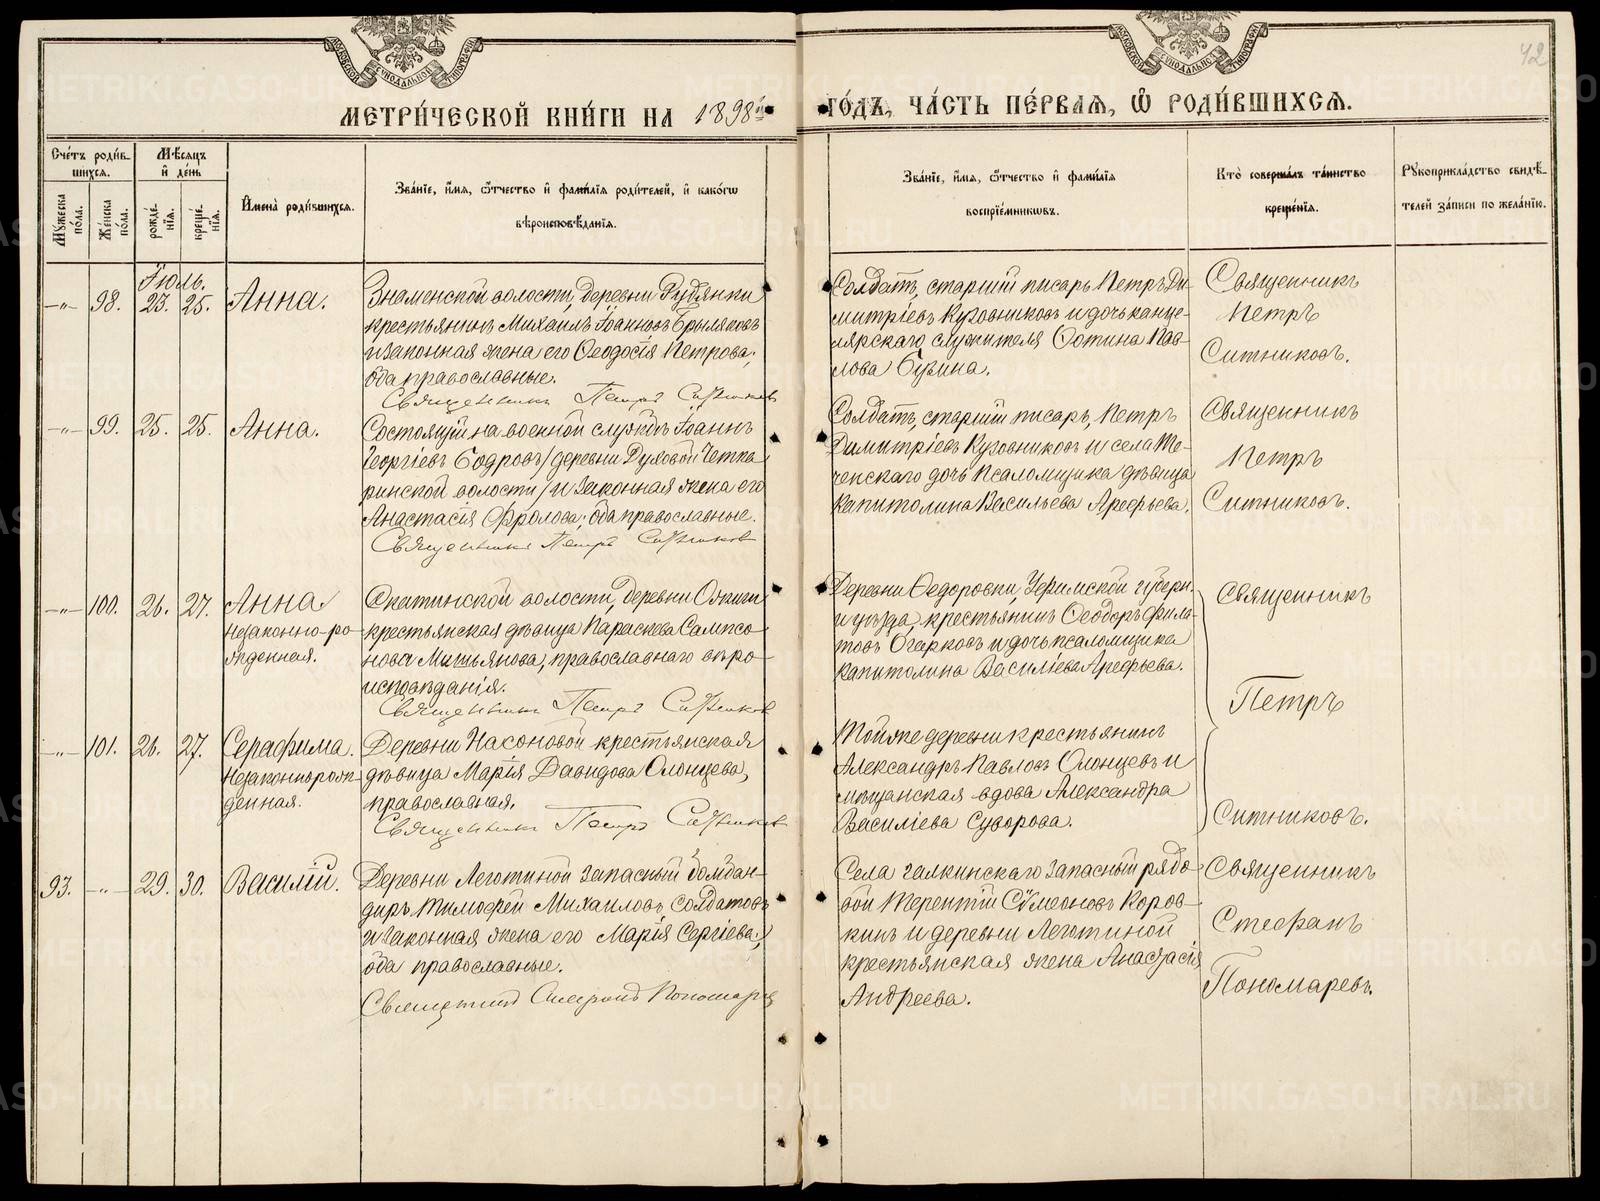 42
МОСКОВСКОЙ СѴНОДАЛЬНОЙ ТИПОГРАФІИ
МЕТРИ́ЧЕСКОЙ КНИ́ГИ НА 1898й
ГО́ДЪ, ЧА́СТЬ ПЕ́РВАЯ, Ѡ҆ РОДИ́ВШИХСЯ.
Сче́тъ роди́в-
шихся.
Мѣсяцъ
и҆ де́нь
Мꙋжеска по́ла.
Же́нска по́ла.
рожде́-нїя.
креще́-нїя.
И҆мена̀ роди́вшихся.
Зва́нїе, и҆́мя, ѻ҆́тчество и҆ фами́лїя роди́телей, и҆ како́гѡ
вѣроисповѣ́данїя.
Зва́нїе, и҆́мя, ѻ҆́тчество и҆ фами́лїя
воспрїе́мникѡвъ.
Кто̀ соверша́лъ та́инство
креще́нїя.
Рꙋкоприкла́дство свидѣ́-
телей за́писи по жела́нїю.
Іюль.
—„— 98. 23. 25. Анна.
Знаменской волости, деревни Рудянки
крестьянинъ Михаилъ Іоанновъ Брыляковъ
и законная жена его Ѳеодосія Петрова;
оба православные.
Священникъ Петръ Ситниковъ
Солдатъ, старшій писарь Петръ Ди-
митріевъ Кузовниковъ и дочь канце-
лярскаго служителя Фотина Пав-
лова Бузина.
Священникъ
Петръ
Ситниковъ.
—„— 99. 25. 25. Анна.
Состоящій на военной службѣ Іоаннъ
Георгіевъ Бодровъ /деревни Духовой Четка-
ринской волости/ и законная жена его
Анастасія Фролова; оба православные.
Священникъ Петръ Ситниковъ
Солдатъ, старшій писарь, Петръ
Димитріевъ Кузовниковъ и села Те-
ченскаго дочь псаломщика дѣвица
Капитолина Васильева Арефьева.
Священникъ
Петръ
Ситниковъ.
—„— 100. 26. 27. Анна
незаконно-ро-
жденная.
Скатинской волости, деревни
крестьянская дѣвица Параскева Сампсо-
нова православнаго вѣро-
исповѣданія.
Священникъ Петръ Ситниковъ
Деревни Ѳедоровки, Уфимской губерн.
и уѣзда, крестьянинъ Ѳеодоръ Фила-
товъ Огарковъ и дочь псаломщика
Капитолина Василіева Арефьева.
Священникъ
Петръ
Ситниковъ.
—„— 101. 26. 27. Серафима.
Незаконнорож-
денная.
Деревни Насоновой крестьянская
дѣвица Марія Давидова Олонцева,
православная.
Священникъ Петръ Ситниковъ
Той же деревни крестьянинъ
Александръ Павловъ Олонцевъ и
мѣщанская вдова Александра
Василіева Суворова.
93. —„— 29. 30. Василій.
Деревни Леготиной запасный бомбан-
диръ Тимофей Михаиловъ Солдатовъ
и законная жена его Марія Сергіева;
оба православные.
Священникъ Стефанъ Пономаревъ
Села Галкинскаго запасный рядо-
вой Терентій Сѵмеоновъ Коров-
кинъ и деревни Леготиной
крестьянская жена Анастасія
Андреева.
Священникъ
Стефанъ
Пономаревъ.
METRIKI.GASO-URAL.RU